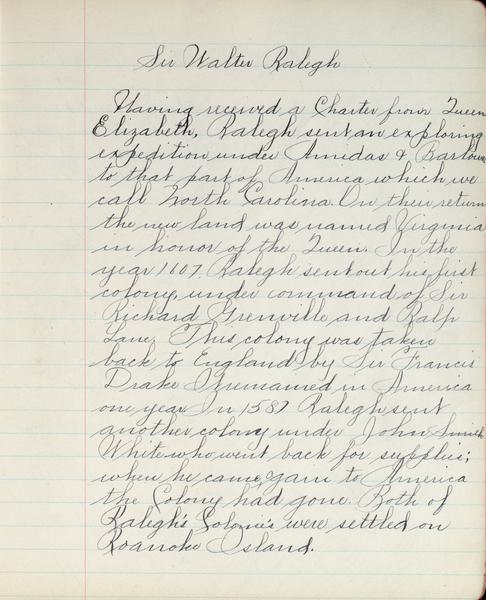 Sir Walter Ralegh
Having received a Charter from Queen
Elizabeth, Ralegh sent an exploring
expedition under Amidas & Barlowe
to that part of America which we
call North Carolina. On their return
the new land was named Virginia
in honor of the Queen. In the
year 1607 Ralegh sent out his first
colony, under command of Sir
Richard Grenville and Ralp
Lane. This colony was taken
back to England by Sir Francis
Drake It remained in America
one year In 1587 Ralegh sent
another colony under John Smith
White who went back for supplies;
when he came gain to America
the Colony had gone. Both of
Ralegh's Colonies were settled on
Roanoke Island.